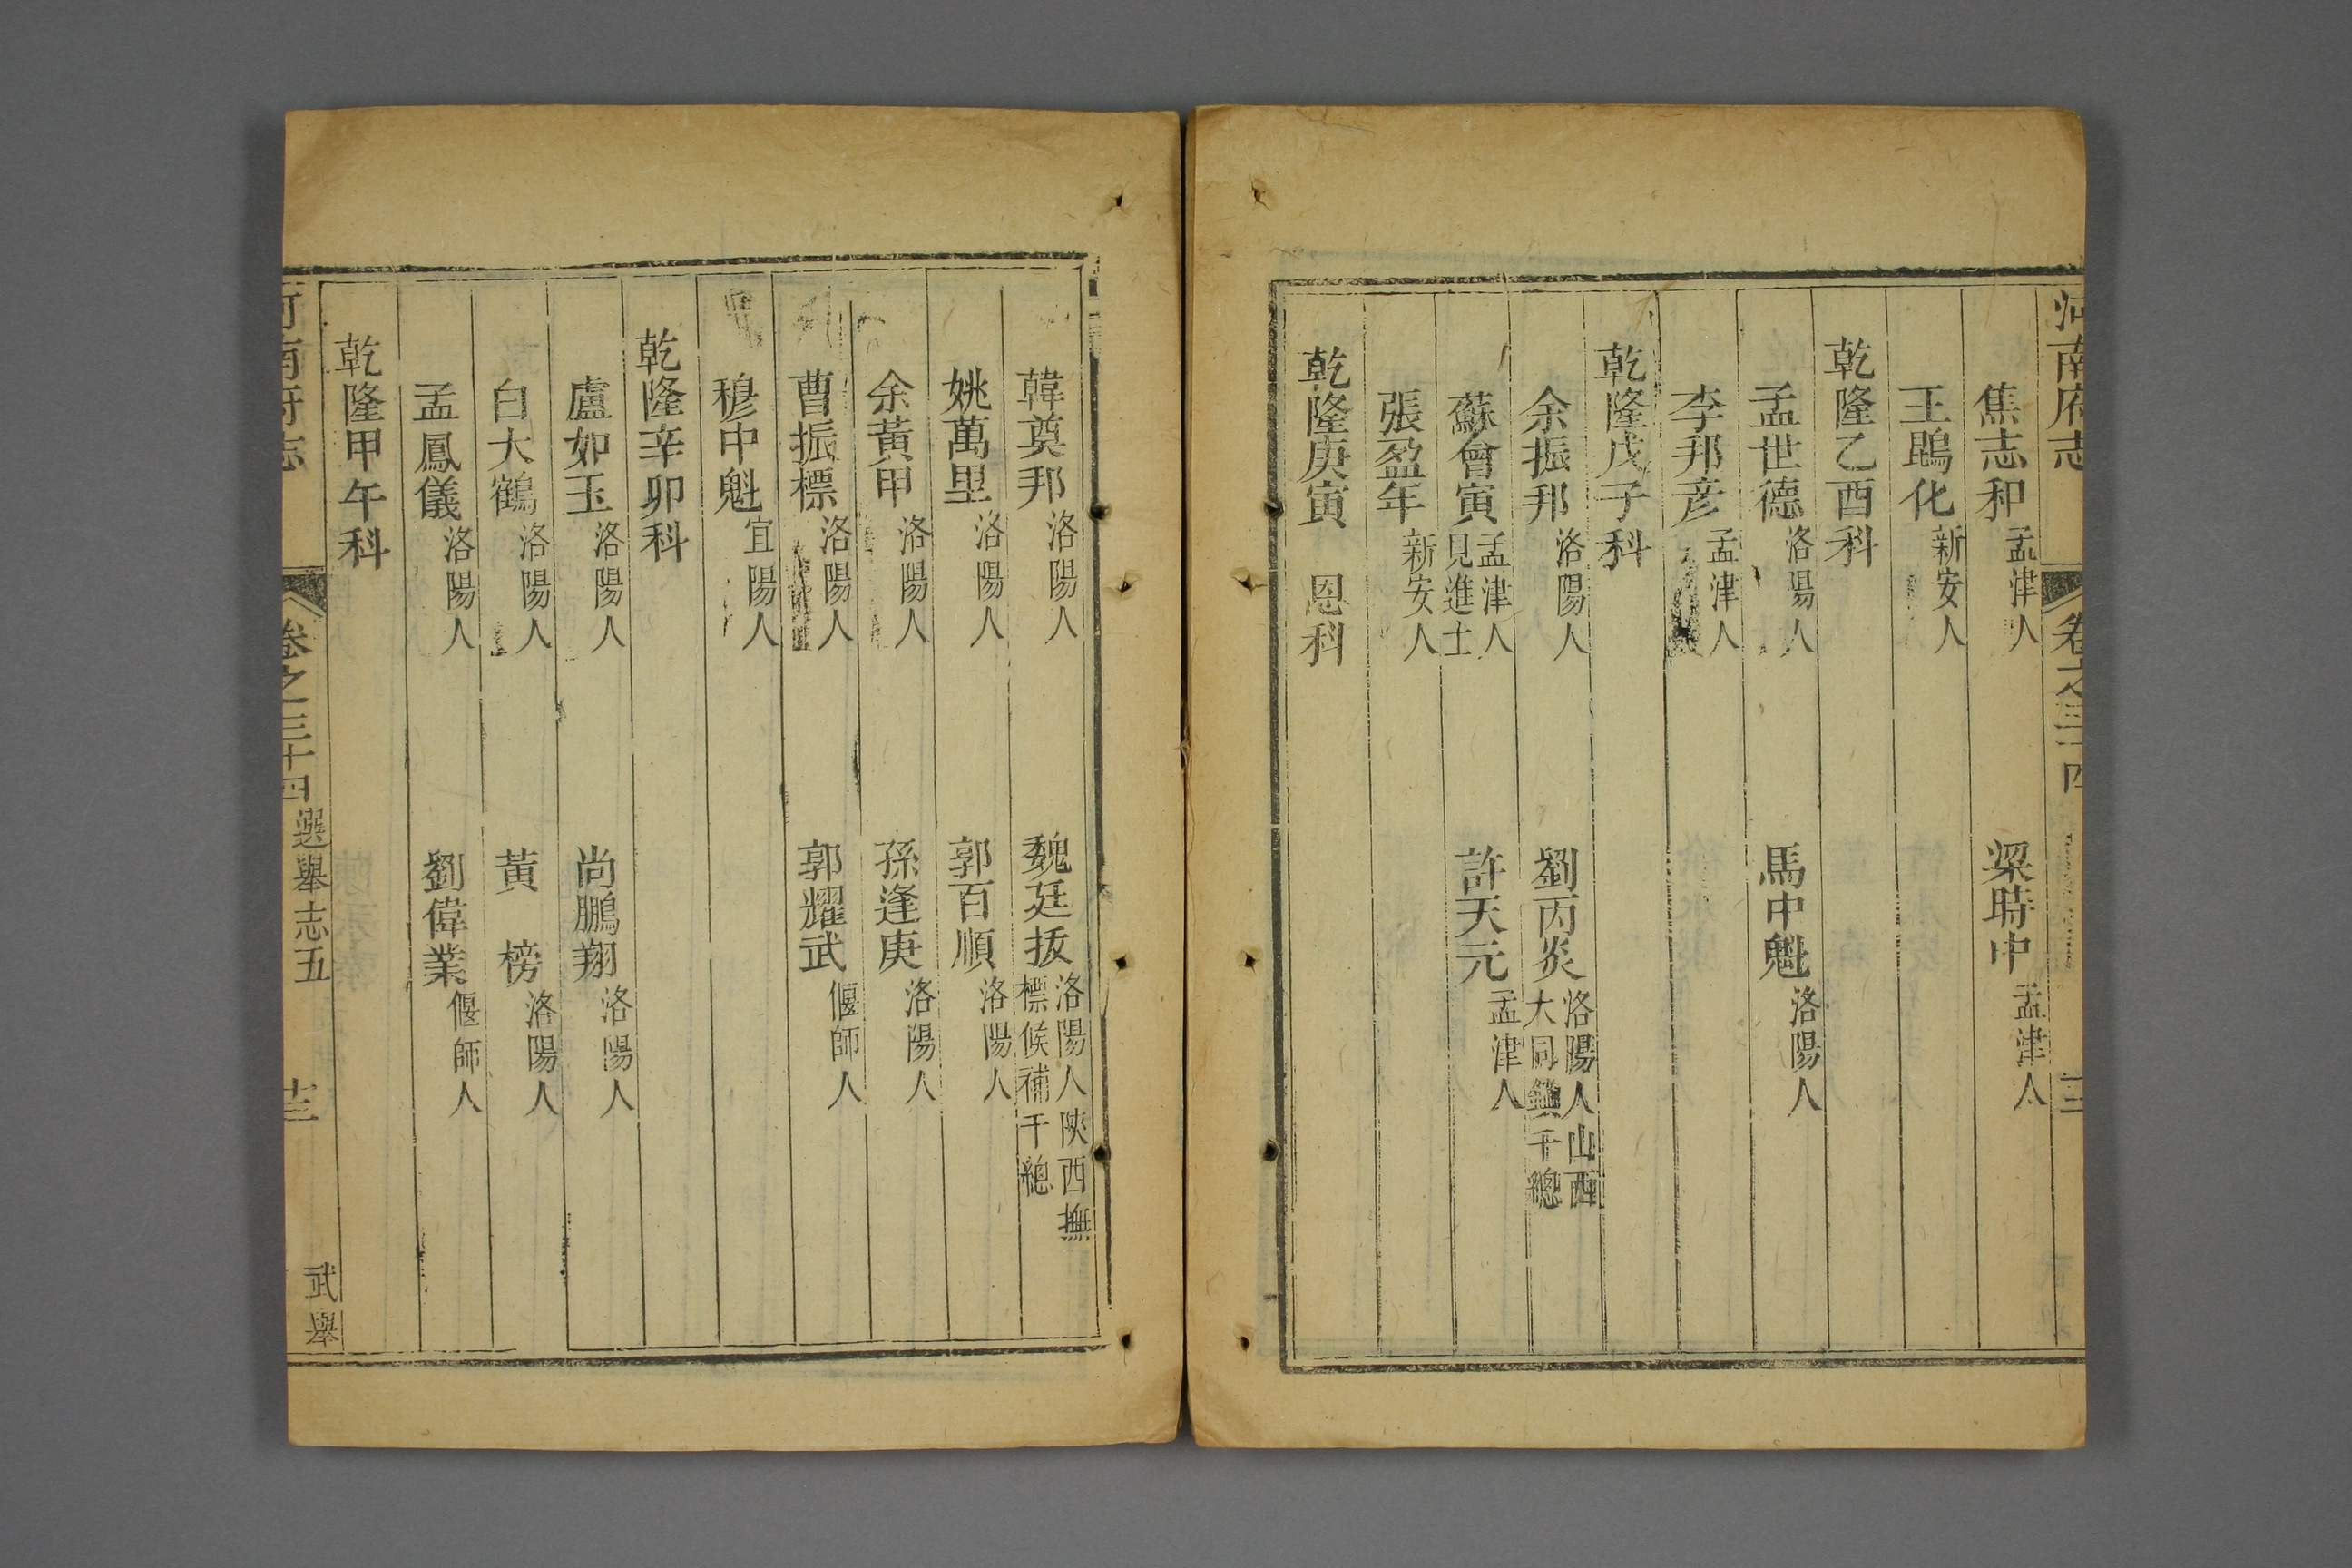 河南府志 卷之三十四
焦志和 孟津人 梁時中 孟津人
王鵾化 新安人
乾隆乙酉科
孟世德 洛陽人 馬中魁 洛陽人
李邦彦 孟津人
乾隆戊子科
余振邦 洛陽人 劉丙炎 洛陽人山西大同鎮千總
蘇會寅 孟津人見進士 許天元 孟津人
張盈年 新安人
乾隆庚寅 恩科
韓奠邦 洛陽人 魏廷拔 洛陽人陝西撫標候補千總
姚萬里 洛陽人 郭百順 洛陽人
余黃甲 洛陽人 孫逢庚 洛陽人
曹振標 洛陽人 郭耀武 偃師人
穆中魁 宜陽人
乾隆辛卯科
盧如玉 洛陽人 尚鵬翔 洛陽人
白大鶴 洛陽人 黃榜 洛陽人
孟鳳儀 洛陽人 劉偉業 偃師人
乾隆甲午科
河南府志 卷之三十四 選舉志五 武舉